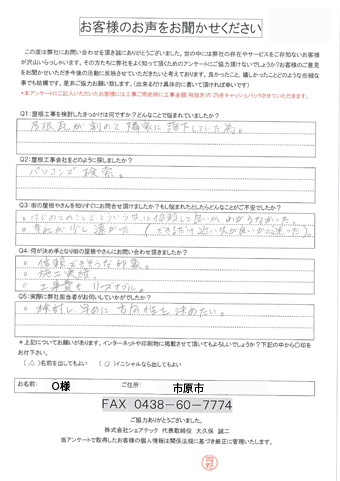 お客様のお声をお聞かせください
この度は弊社にお問い合わせを頂き誠にありがとうございました。世の中には弊社の存在やサービスをご存知ないお客様
が沢山いらっしゃいます。その方たちに弊社をよく知って頂くためのアンケートにご協力頂けないでしょうか？お客様のご意見
をお聞かせいただき今後の活動に反映させていただきたいと考えております。良かったこと、嬉しかったことどのような些細な
事でも結構です。是非ご協力お願い致します。（出来るだけ具体的に書いて頂ければ幸いです）
*本アンケートにご記入いただいたお客様には工事ご用命時に工事金額（税抜き）の2%をキャッシュバックさせていただきます。
Q1：屋根工事を検討したきっかけは何ですか？どんなことで悩まれていましたか？
屋根瓦が割れて隣家に落下していた為。
Q2：屋根工事会社をどのように探しましたか？
パソコンで検索。
Q3：街の屋根やさんを知りすぐにお問合せ頂けましたか？もし悩まれたとしたらどんなことがご不安でしたか？
はじめてのことでどういう所に依頼して良いかわからなかった。
会社が少し遠かった（できるだけ近い方が良いかと迷った）。
Q4：何が決め手となり街の屋根やさんにお問い合わせ頂きましたか？
○ 信頼できそうな印象。
○ 施工実績。
○ 工事費もリーズナブル。
Q5：実際に弊社担当者がお伺いしていかがでしたか？
○ 検討し、早めに方向性を決めたい。
＊上記についてお願いがあります。インターネットや印刷物に掲載させて頂いてもよろしいでしょうか？下記の中から〇印を
お付下さい。
（△）名前を出してもよい （○）イニシャルなら出してもよい
お名前： O様 ご住所： 市原市
FAX 0438-60-7774
ご協力ありがとうございました。
株式会社シェアテック 代表取締役 大久保 誠二
当アンケートで取得したお客様の個人情報は関係法規に基づき厳正に管理いたします。